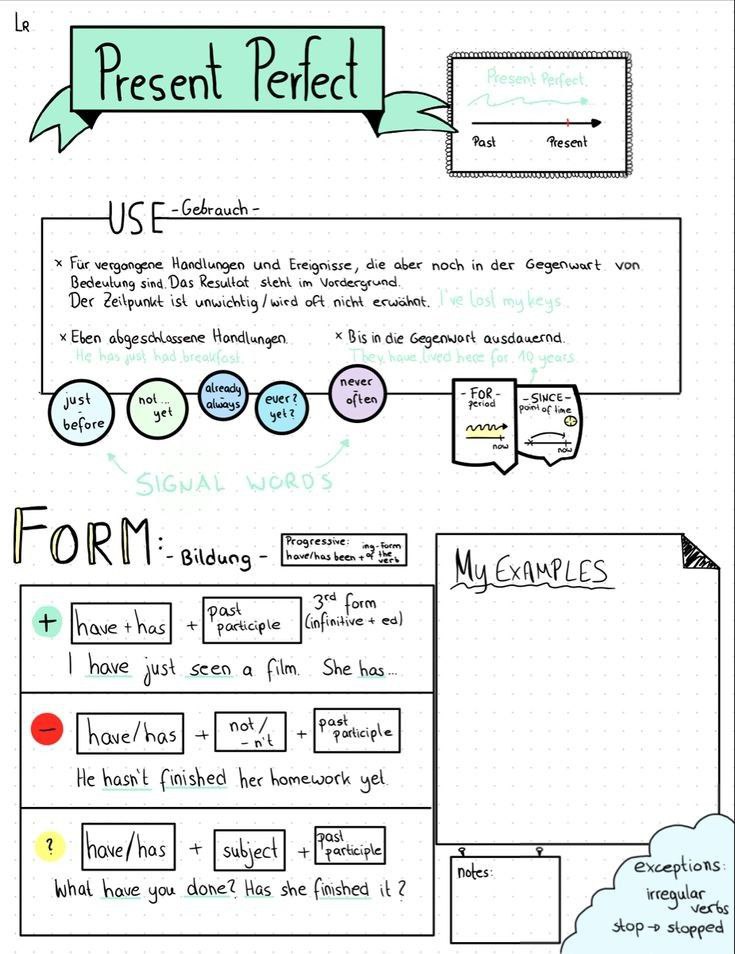 LR
Present Perfect
Present Perfect
Past Present
USE - Gebrauch -
x Für vergangene Handlungen und Ereignisse, die aber noch in der Gegenwart von
Bedeutung sind. Das Resultat steht im Vordergrund.
Der Zeitpunkt ist unwichtig / wird oft nicht erwähnt. I've lost my keys.
x Eben abgeschlossene Handlungen.
He has just had breakfast.
x Bis in die Gegenwart ausdauernd.
They have lived here for 10 years.
just
-
before
not...
yet
already
-
always
ever?
yet?
never
-
often
- FOR -
period
now
- SINCE -
point of time
now
SIGNAL WORDS
FORM: - Bildung -
Progressive: ing-Form
have/has been + of the
verb
+
have + has + past
participle
3rd form
(infinitive + ed)
I have just seen a film. She has...
-
have/has + not /
- n't
+ past
participle
He hasn't finished her homework yet.
?
have/has + subject + past
participle
What have you done? Has she finished it?
My EXAMPLES
notes:
exceptions:
irregular
verbs
stop → stopped